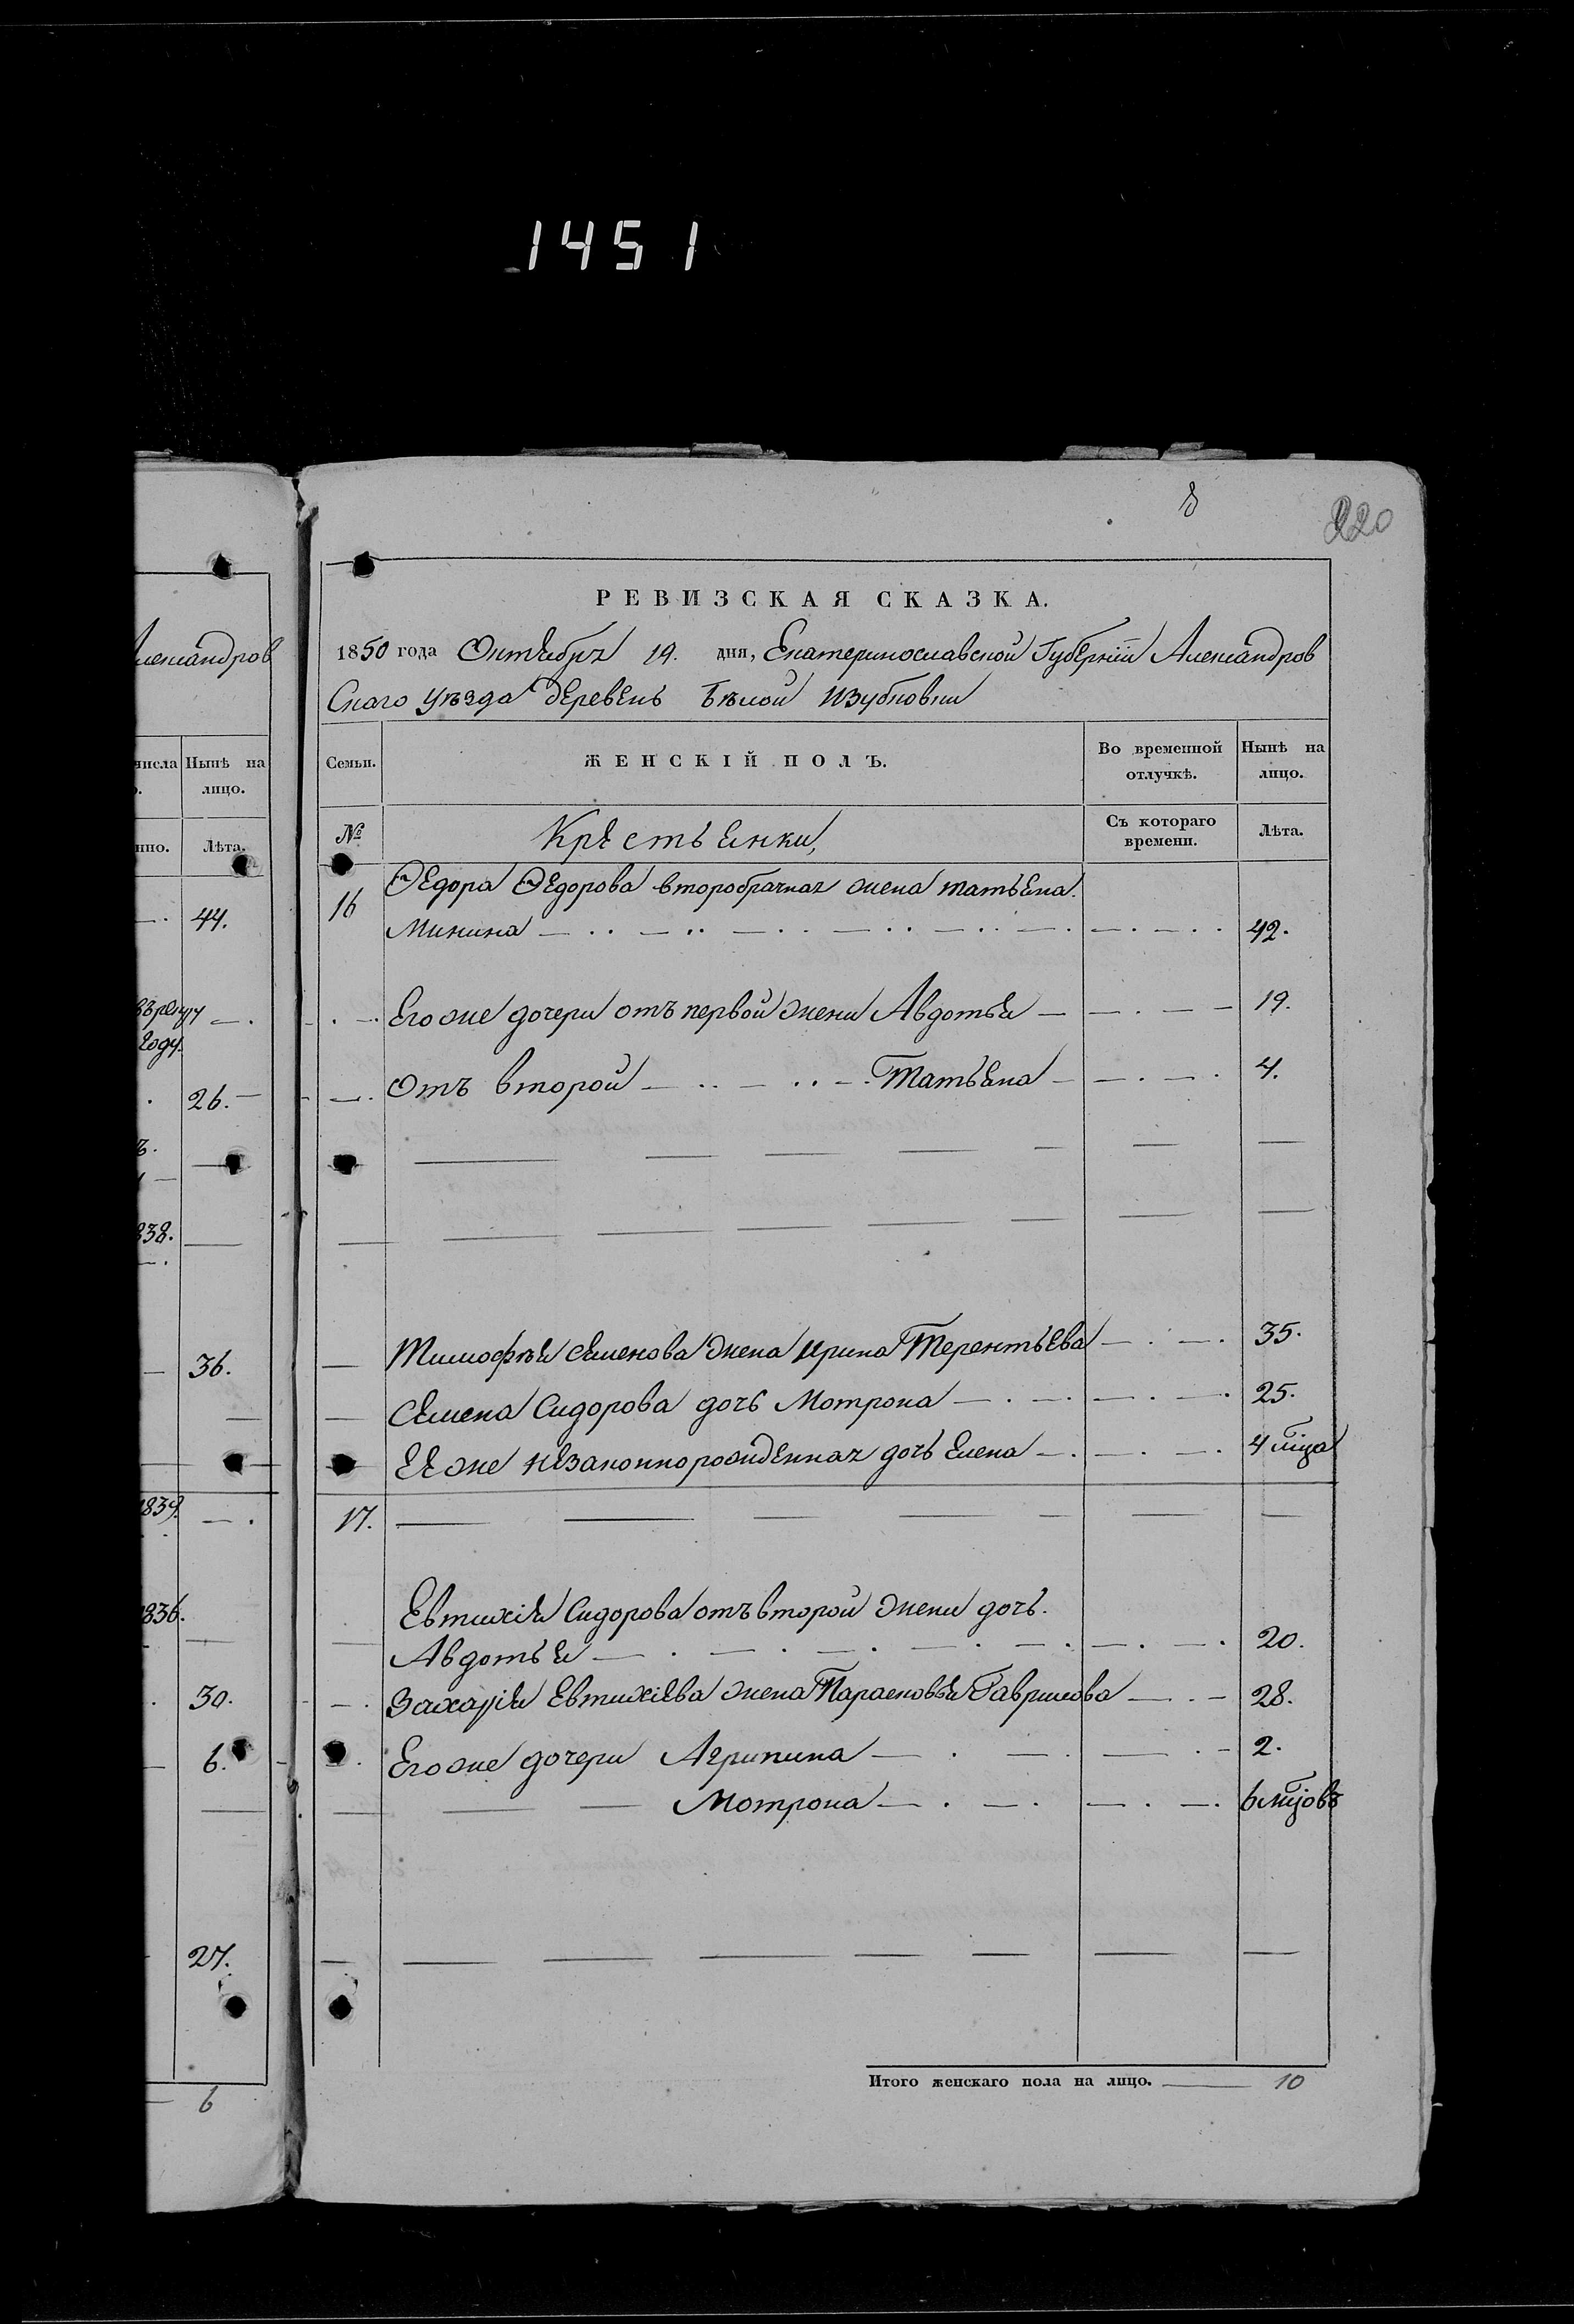 1451
8
220
РЕВИЗСКАЯ СКАЗКА.
1850 года Октября 19. дня, Екатеринославской Губерніи Александров
Скаго уѣзда деревень Бѣлой и Зубковки
Семьи.
ЖЕНСКІЙ ПОЛЪ.
Во временной отлучкѣ.
Нынѣ на лицо.
№
Крестьянки,
Съ котораго времени.
Лѣта.
16 Ѳедора Ѳедорова второбрачная жена татьяна.
Минина 42.
Его же дочери отъ первой жены Авдотья 19.
отъ второй Татьяна 4.
Тимофѣя семенова жена ирина Терентьева 35.
Семена Сидорова дочь Мотрона 25.
Ея же незаконнорожденная дочь Елена 4 мца
17.
Евтихія Сидорова отъ второй жены дочь.
Авдотья 20.
Захарія Евтихіева жена Парасковья Гаврилова 28.
Его же дочери Агрипина 2.
Мотрона 6 мцовъ
Итого женскаго пола на лицо. 10
Александров
числа
Нынѣ на лицо.
нно.
Лѣта.
44.
году.
26.
838.
36.
1839.
1836.
30.
6.
27.
6